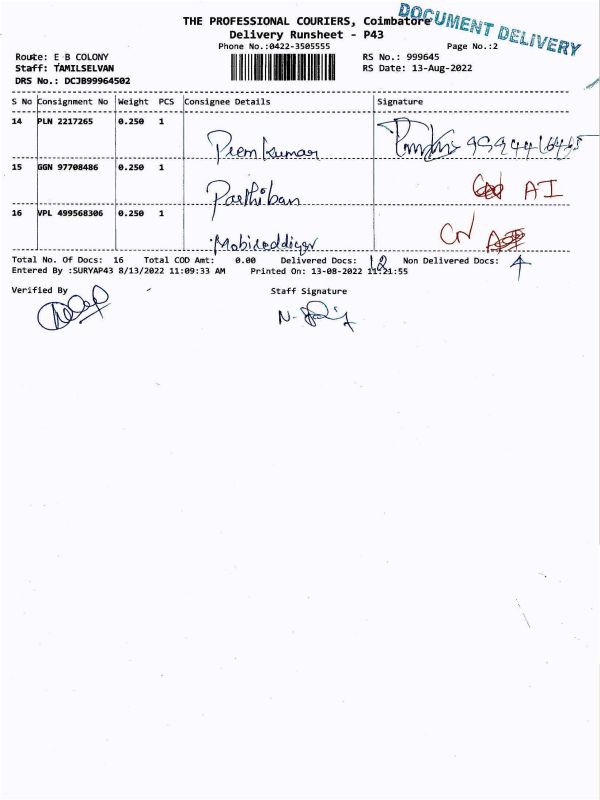 THE PROFESSIONAL COURIERS, Coimbatore
DOCUMENT DELIVERY
Delivery Runsheet - P43
Phone No.:0422-3505555
Page No.:2
Route: E B COLONY
RS No.: 999645
Staff: TAMILSELVAN
RS Date: 13-Aug-2022
DRS No.: DCJB99964502
S No Consignment No Weight PCS Consignee Details Signature
14 PLN 2217265 0.250 1
Prem kumar
15 GGN 97708486 0.250 1
Parthiban AI
16 VPL 499568306 0.250 1
CN
Total No. Of Docs: 16 Total COD Amt: 0.00 Delivered Docs: 12 Non Delivered Docs: 4
Entered By :SURYAP43 8/13/2022 11:09:33 AM Printed On: 13-08-2022 11:21:55
Verified By Staff Signature